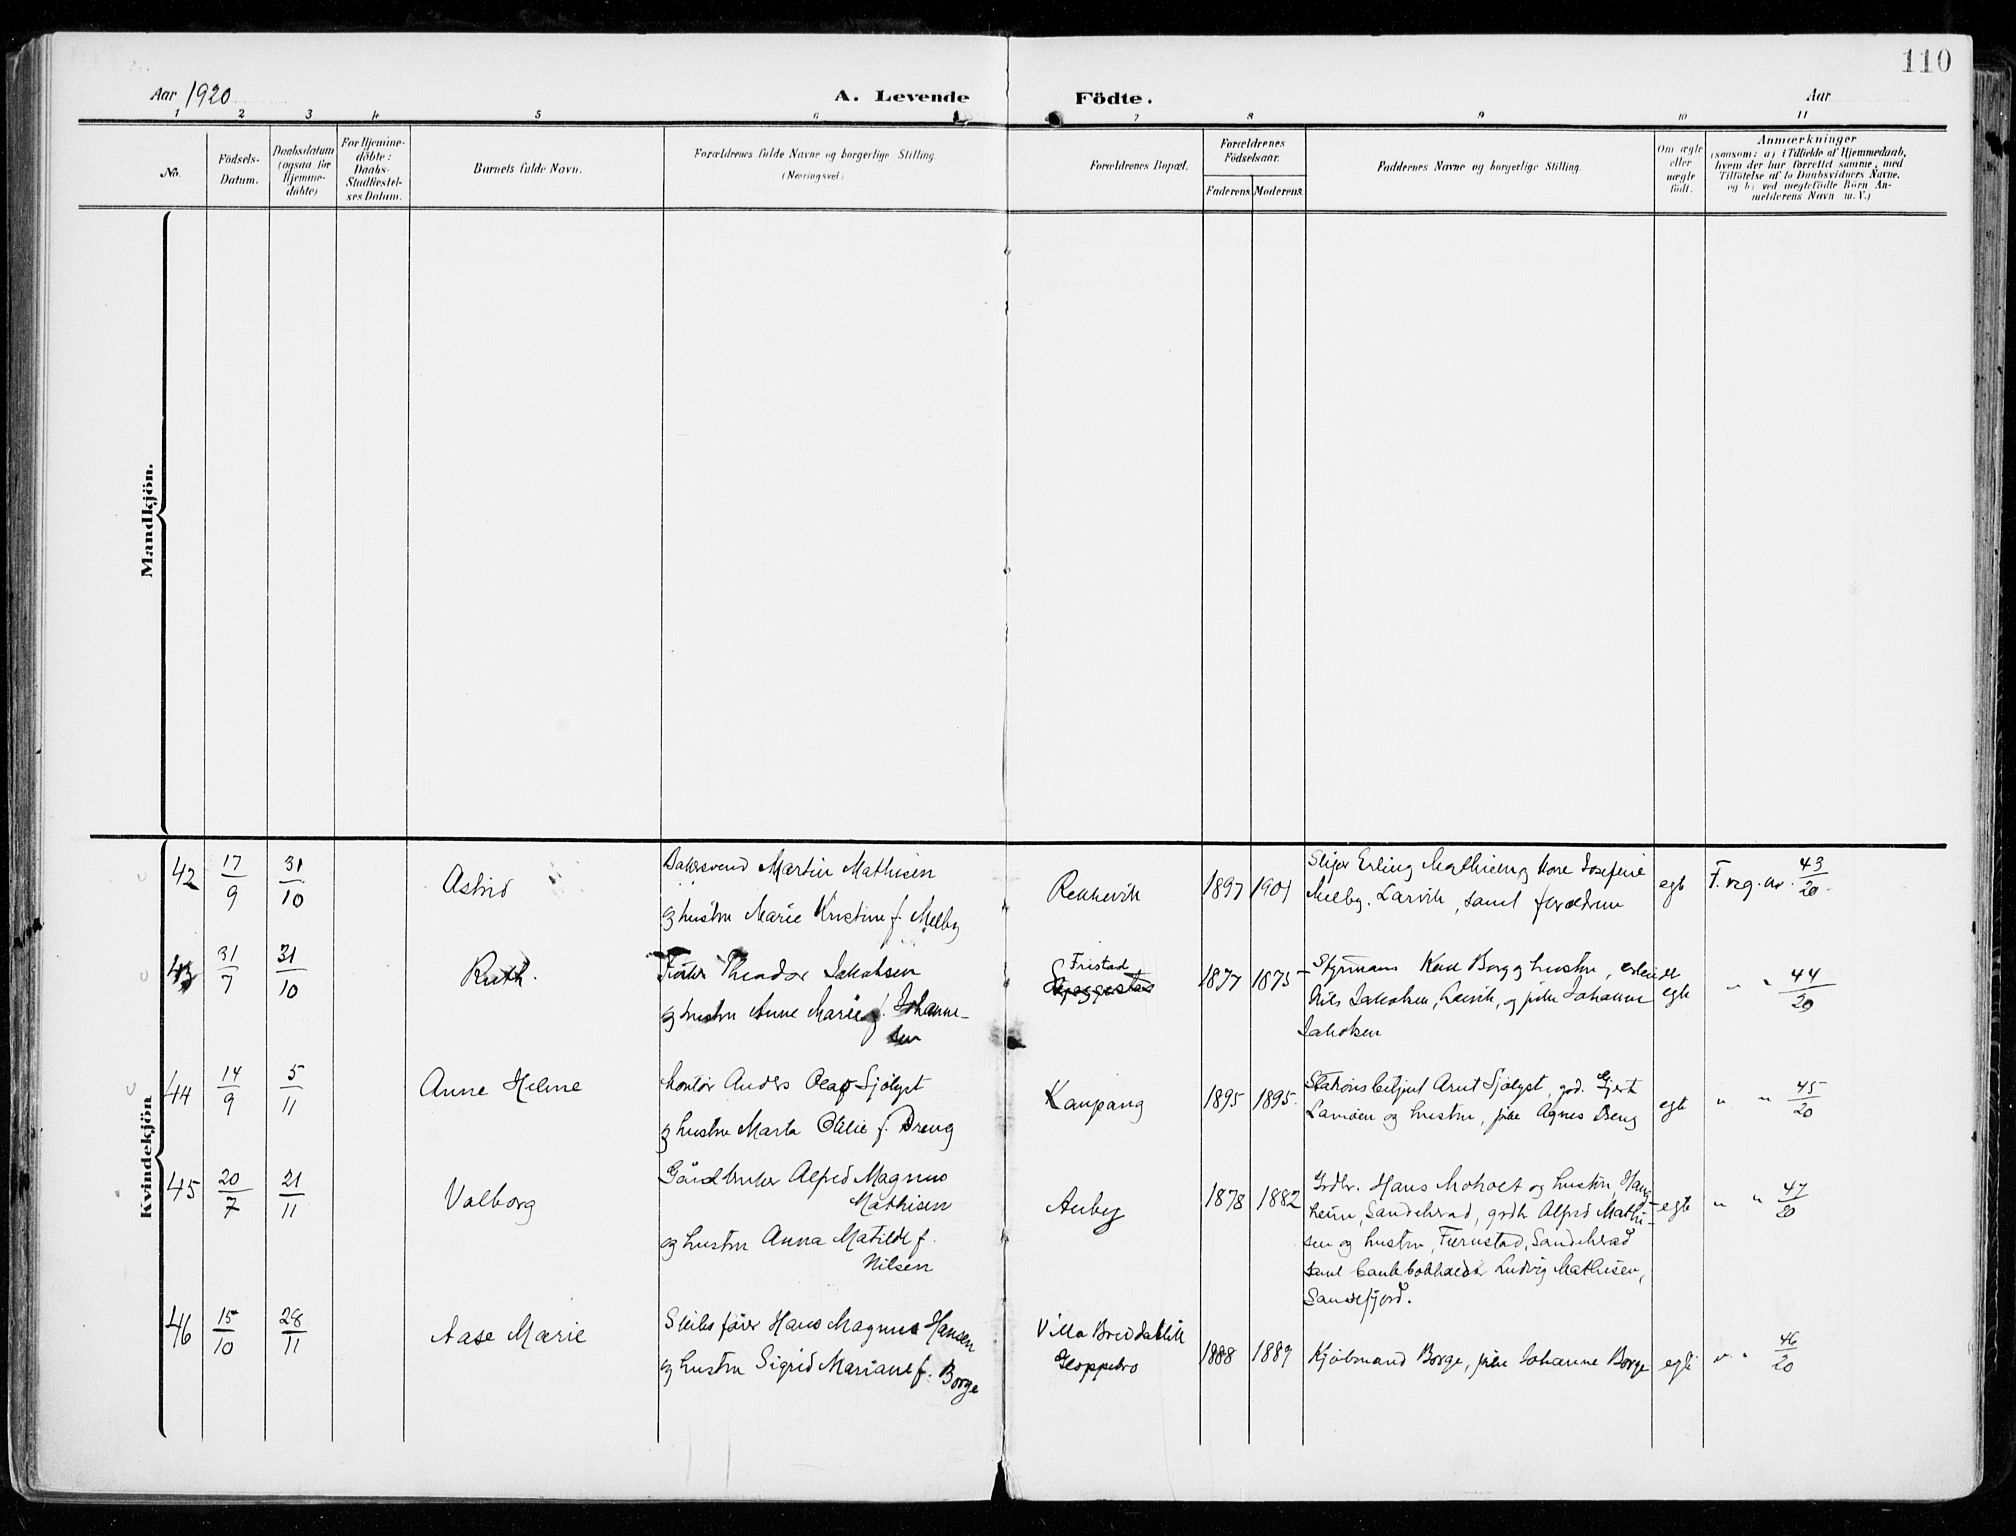 110
Aar 1920
A. Levende Födte.
Aar
1 2 3 4 5 6 7 8 9 10 11
No.
Födsels-Datum.
Daabsdatum (ogsaa for Hjemme-döbte)
For Hjemme-döbte: Daabs-Stadfæstel-ses Datum.
Barnets fulde Navn.
Forældrenes fulde Navne og borgerlige Stilling (Næringsvei.)
Forældrenes Bopæl.
Forældrenes Födselsaar.
Faderens. Moderens.
Faddernes Navne og borgerlige Stilling.
Om ægte eller uægte födt.
Anmærkninger
(saasom: a) i Tilfælde af Hjemmedaab,
hvem der har forrettet samme, med
Tilföielse af to Daabsvidners Navne.
og b) ved uægtefödte Börn An-
melderens Navn m. V.)
Mandkjön.
Kvindekjön
42 17/9 31/10 Astrid
Bakersvend Martin Mathisen
og hustru Marie Kristine f. Melby
Rekkevik 1897 1901
Erling Mathisen og Josefine
Melby, Larvik, samt forældrene
egte F. reg. nr. 43/20
43 31/7 31/10 Ruth.
Theodor Jakobsen
og hustru Anne Marie f. Johanne-
sen
Fristad
1877 1875
Styrmann Karl Borg og hustru,
Nils Jakobsen, Larvik, og pike Johanne
Jakobsen
egte " " 44/20
44 14/9 5/11 Anne Helene
Kontor Anders Olaf Sjölyst
og hustru Marta Otilie f. Dreng
Kaupang 1895 1895.
Stationsbetjent Arnt Sjölyst, grd. Gjert
Lamöen og hustru, pike Agnes Dreng
egte " " 45/20
45 20/7 21/11 Valborg
Gårdbruker Alfred Magnus
Mathisen
og hustru Anna Matilde f.
Nilsen
Auby 1878 1882
Grdbr. Hans Moholt og hustru, Haug-
heim, Sandeherad, grdb. Alfred Mathi-
sen og hustru, Furustad, Sandeherad
samt bankbokholder Ludvig Mathisen,
Sandefjord.
egte " " 47/20
46 15/10 28/11 Aase Marie
Skibsförer Hans Magnus Hansen
og hustru Sigrid Mariane f. Borge
Villa Breidablik
Gloppebro
1888 1889
Kjöbmand Borge, pike Johanne Borge
egte " " 46/20